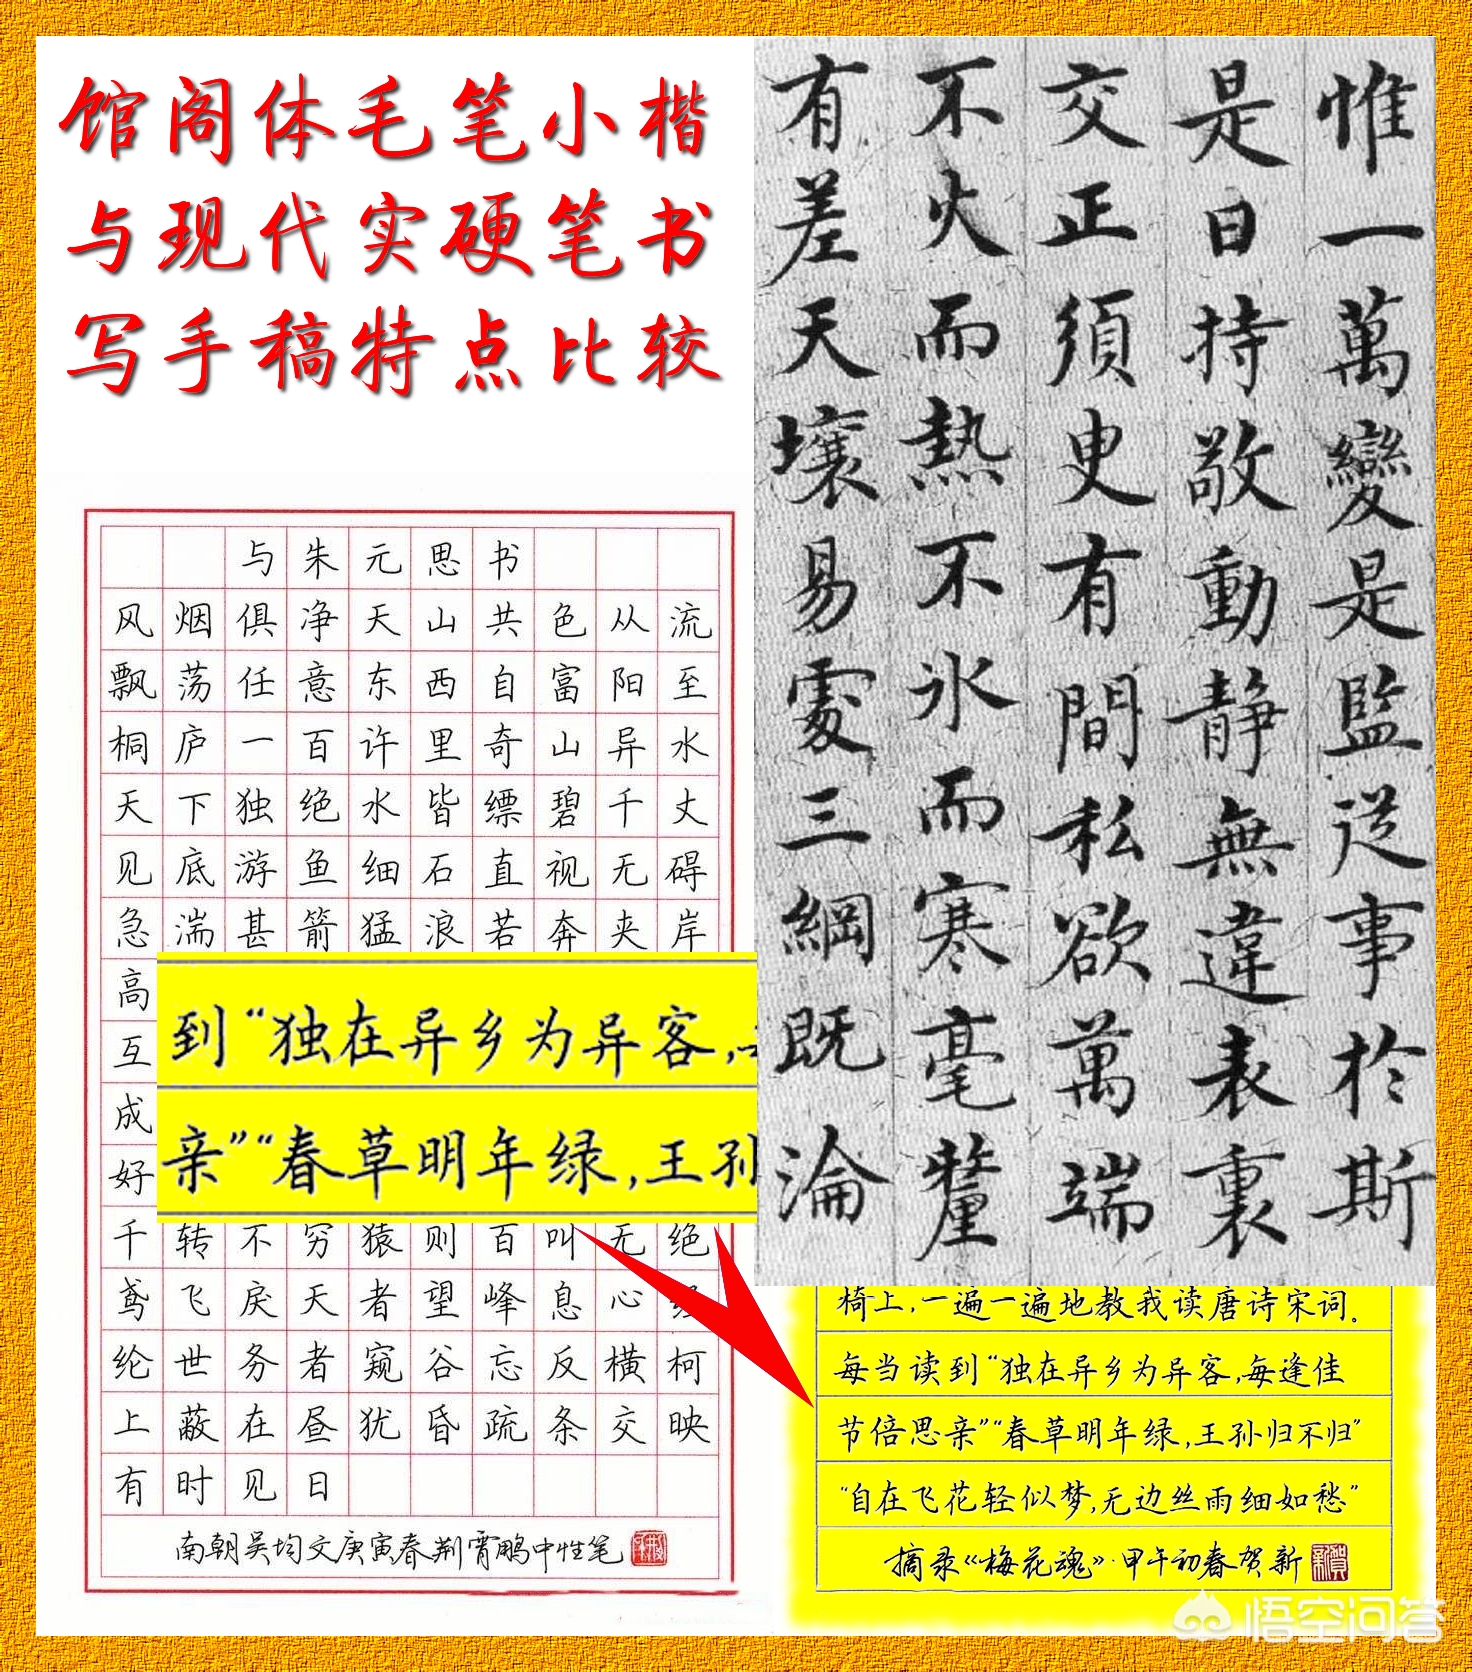 馆阁体毛笔小楷
与现代实硬笔书
写手稿特点比较
惟一萬變是監從事於斯
是日持敬動静無違表裏
交正須臾有間私欲萬端
不火而熱不氷而寒毫釐
有差天壤易處三綱既淪
与朱元思书
风烟俱净天山共色从流
飘荡任意东西自富阳至
桐庐一百许里奇山异水
天下独绝水皆缥碧千丈
见底游鱼细石直视无碍
急湍甚箭猛浪若奔夹岸
高
互
成
好
千转不穷猿则百叫无绝
鸢飞戾天者望峰息心经
纶世务者窥谷忘反横柯
上蔽在昼犹昏疏条交映
有时见日
南朝吴均文庚寅春荆霄鹏中性笔
到“独在异乡为异客,
亲”“春草明年绿,王孙
椅上,一遍一遍地教我读唐诗宋词。
每当读到“独在异乡为异客,每逢佳
节倍思亲”“春草明年绿,王孙归不归”
“自在飞花轻似梦,无边丝雨细如愁”
摘录《梅花魂》·甲午初春贺新
悟空问答